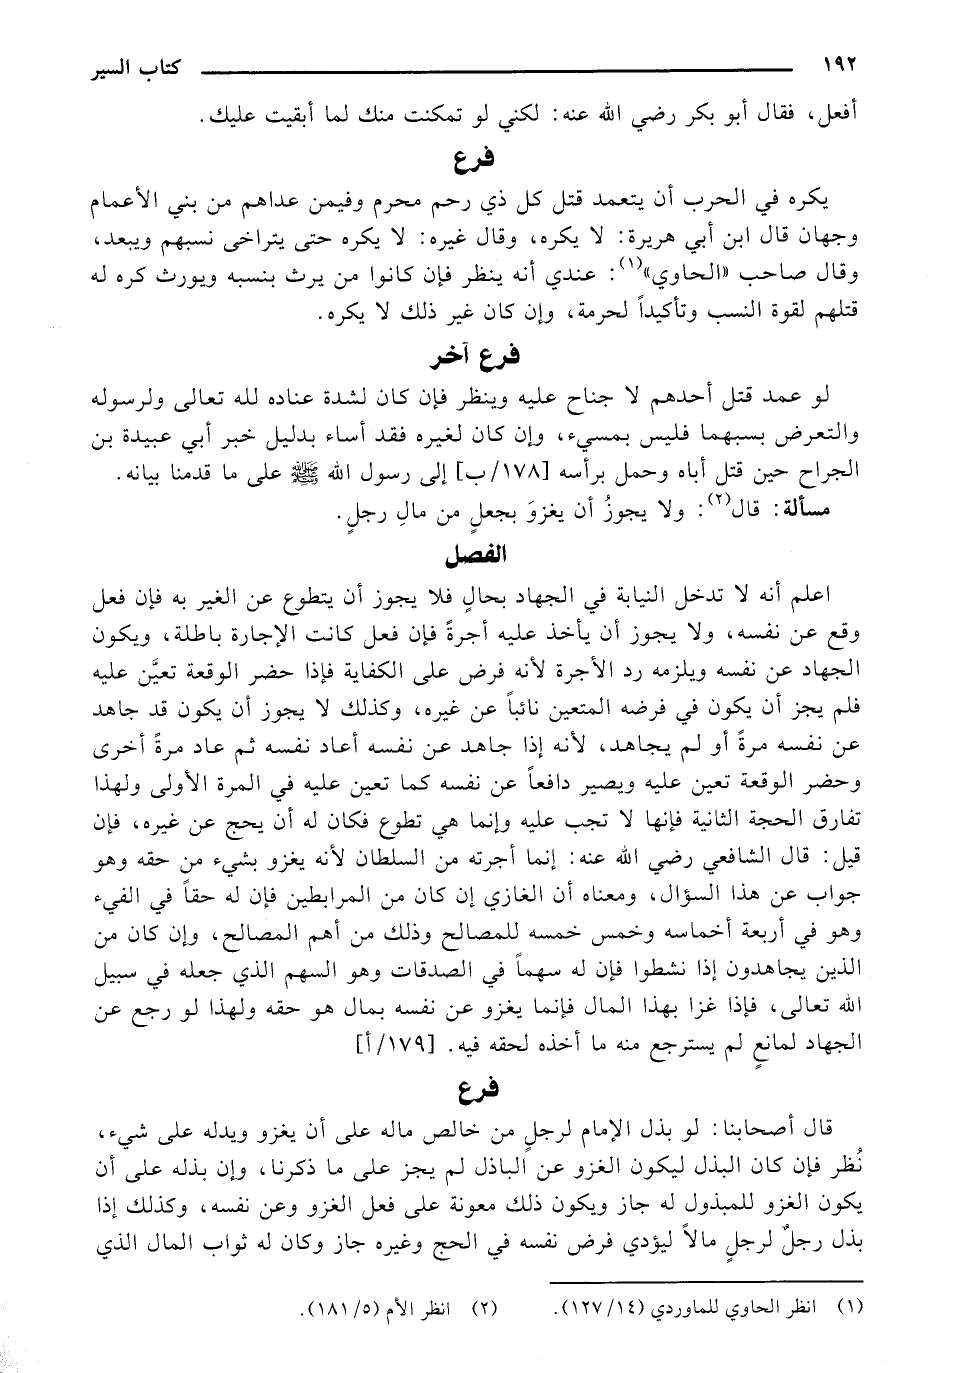 ١٩٢ كتاب السير
أفعل، فقال أبو بكر رضي الله عنه: لكني لو تمكنت منك لما أبقيت عليك.
فرع
يكره في الحرب أن يتعمد قتل كل ذي رحم محرم وفيمن عداهم من بني الأعمام
وجهان قال ابن أبي هريرة: لا يكره، وقال غيره: لا يكره حتى يتراخى نسبهم ويبعد،
وقال صاحب «الحاوي»(١): عندي أنه ينظر فإن كانوا من يرث بنسبه ويورث كره له
قتلهم لقوة النسب وتأكيداً لحرمة، وإن كان غير ذلك لا يكره.
فرع آخر
لو عمد قتل أحدهم لا جناح عليه وينظر فإن كان لشدة عناده لله تعالى ولرسوله
والتعرض بسبهما فليس بمسيء، وإن كان لغيره فقد أساء بدليل خبر أبي عبيدة بن
الجراح حين قتل أباه وحمل برأسه [١٧٨/ب] إلى رسول الله ﷺ على ما قدمنا بيانه.
مسألة: قال(٢): ولا يجوزُ أن يغزوَ بجعلٍ من مالِ رجلٍ.
الفصل
اعلم أنه لا تدخل النيابة في الجهاد بحالٍ فلا يجوز أن يتطوع عن الغير به فإن فعل
وقع عن نفسه، ولا يجوز أن يأخذ عليه أجرةً فإن فعل كانت الإجارة باطلة، ويكون
الجهاد عن نفسه ويلزمه رد الأجرة لأنه فرض على الكفاية فإذا حضر الوقعة تعيَّن عليه
فلم يجز أن يكون في فرضه المتعين نائباً عن غيره، وكذلك لا يجوز أن يكون قد جاهد
عن نفسه مرةً أو لم يجاهد، لأنه إذا جاهد عن نفسه أعاد نفسه ثم عاد مرةً أخرى
وحضر الوقعة تعين عليه ويصير دافعاً عن نفسه كما تعين عليه في المرة الأولى ولهذا
تفارق الحجة الثانية فإنها لا تجب عليه وإنما هي تطوع فكان له أن يحج عن غيره، فإن
قيل: قال الشافعي رضي الله عنه: إنما أجرته من السلطان لأنه يغزو بشيء من حقه وهو
جواب عن هذا السؤال، ومعناه أن الغازي إن كان من المرابطين فإن له حقاً في الفيء
وهو في أربعة أخماسه وخمس خمسه للمصالح وذلك من أهم المصالح، وإن كان من
الذين يجاهدون إذا نشطوا فإن له سهماً في الصدقات وهو السهم الذي جعله في سبيل
الله تعالى، فإذا غزا بهذا المال فإنما يغزو عن نفسه بمال هو حقه ولهذا لو رجع عن
الجهاد لمانعٍ لم يسترجع منه ما أخذه لحقه فيه. [١٧٩/أ]
فرع
قال أصحابنا: لو بذل الإمام لرجلٍ من خالص ماله على أن يغزو ويدله على شيء،
نُظر فإن كان البذل ليكون الغزو عن الباذل لم يجز على ما ذكرنا، وإن بذله على أن
يكون الغزو للمبذول له جاز ويكون ذلك معونة على فعل الغزو وعن نفسه، وكذلك إذا
بذل رجلٌ لرجلٍ مالاً ليؤدي فرض نفسه في الحج وغيره جاز وكان له ثواب المال الذي
(١) انظر الحاوي للماوردي (١٢٧/١٤). (٢) انظر الأم (١٨١/٥).